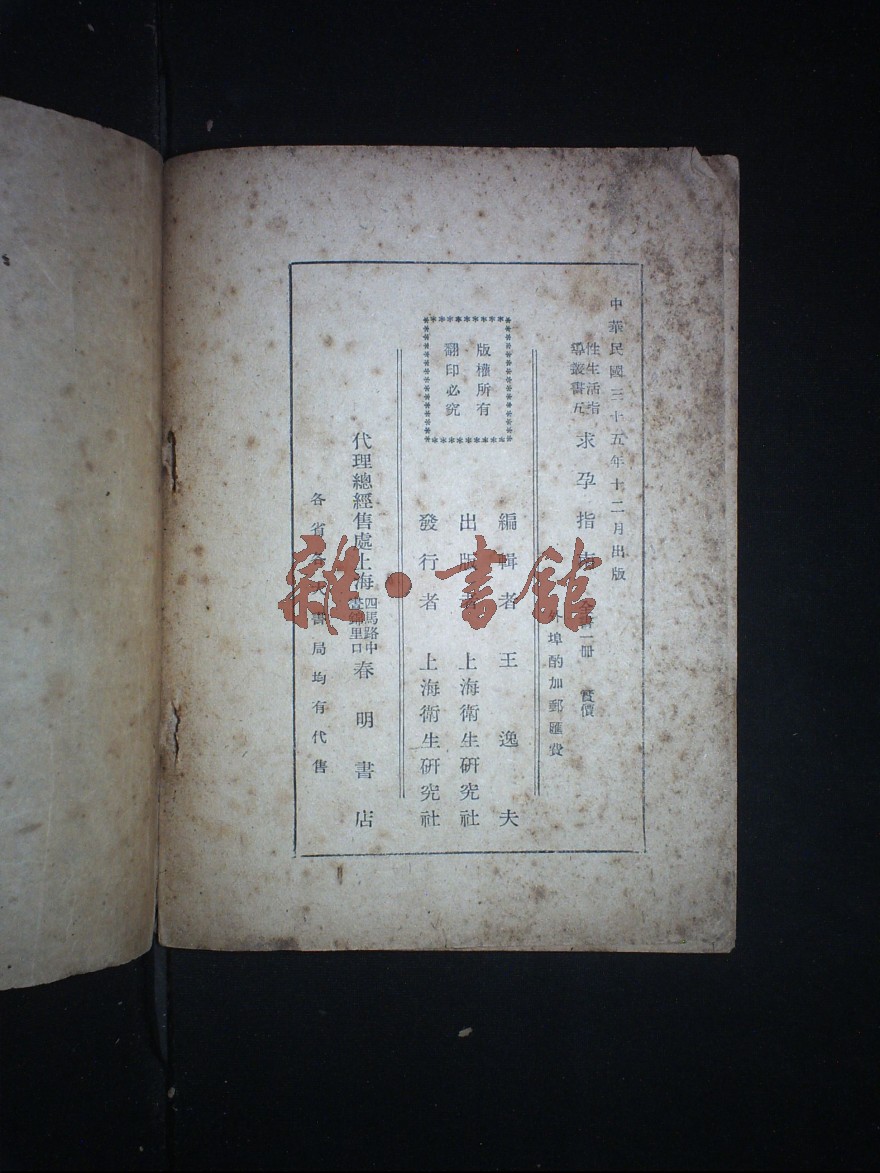 中華民國三十五年十二月出版
性生活指
導叢書九
求孕指南 全書一冊 實價
外埠酌加郵匯費
版權所有
翻印必究
編輯者 王逸夫
出版者 上海衛生研究社
發行者 上海衛生研究社
代理總經售處上海四馬路中畫錦里口春明書店
各省各大書局均有代售
雜·書館